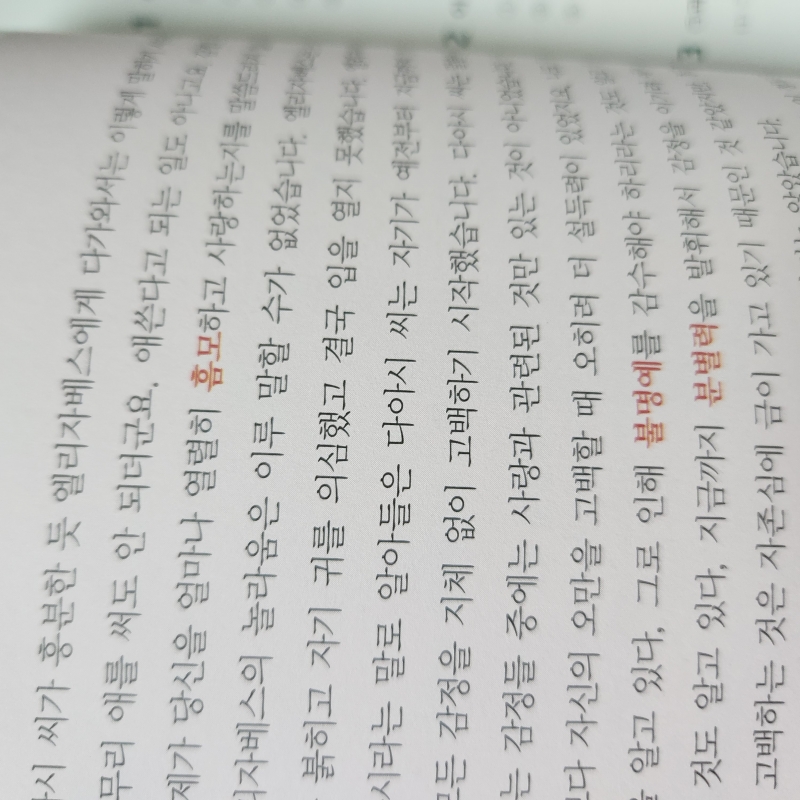 2
3
시 씨가 흥분한 듯 엘리자베스에게 다가와서는 이렇게
무리 애를 써도 안 되더군요. 애쓴다고 되는 일도 아니고요.
제가 당신을 얼마나 열렬히 흠모하고 사랑하는지를
리자베스의 놀라움은 이루 말할 수가 없었습니다.
붉히고 자기 귀를 의심했고 결국 입을 열지 못했습니다.
시라는 말로 알아들은 다아시 씨는 자기가 예전부터
모든 감정을 지체 없이 고백하기 시작했습니다. 다아시 씨는
는 감정들 중에는 사랑과 관련된 것만 있는 것이 아니었습니다
보다 자신의 오만을 고백할 때 오히려 더 설득력이 있었지요.
을 알고 있다, 그로 인해 불명예를 감수해야 하리라는 것도
것도 알고 있다, 지금까지 분별력을 발휘해서 감정을
고백하는 것은 자존심에 금이 가고 있기 때문인 것
않았습니다.